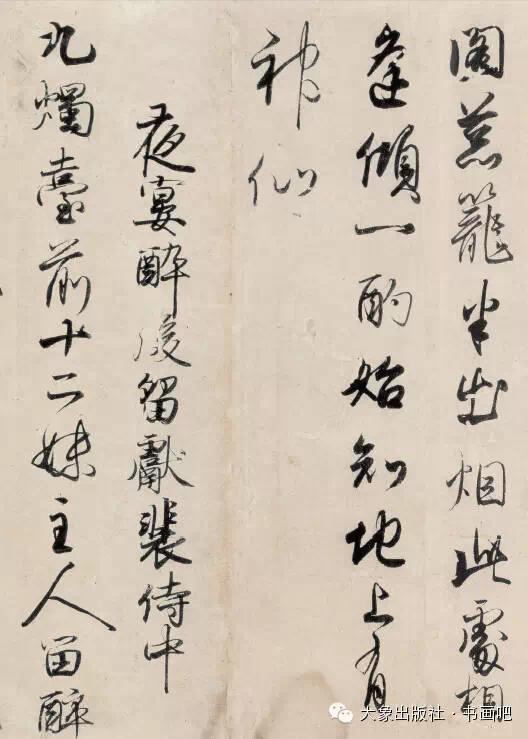 閣葱籠半出烟此處相
逢傾一酌始知地上有
神仙
夜宴醉後留獻裴侍中
九燭臺前十二姝主人留醉
大象出版社·书画吧